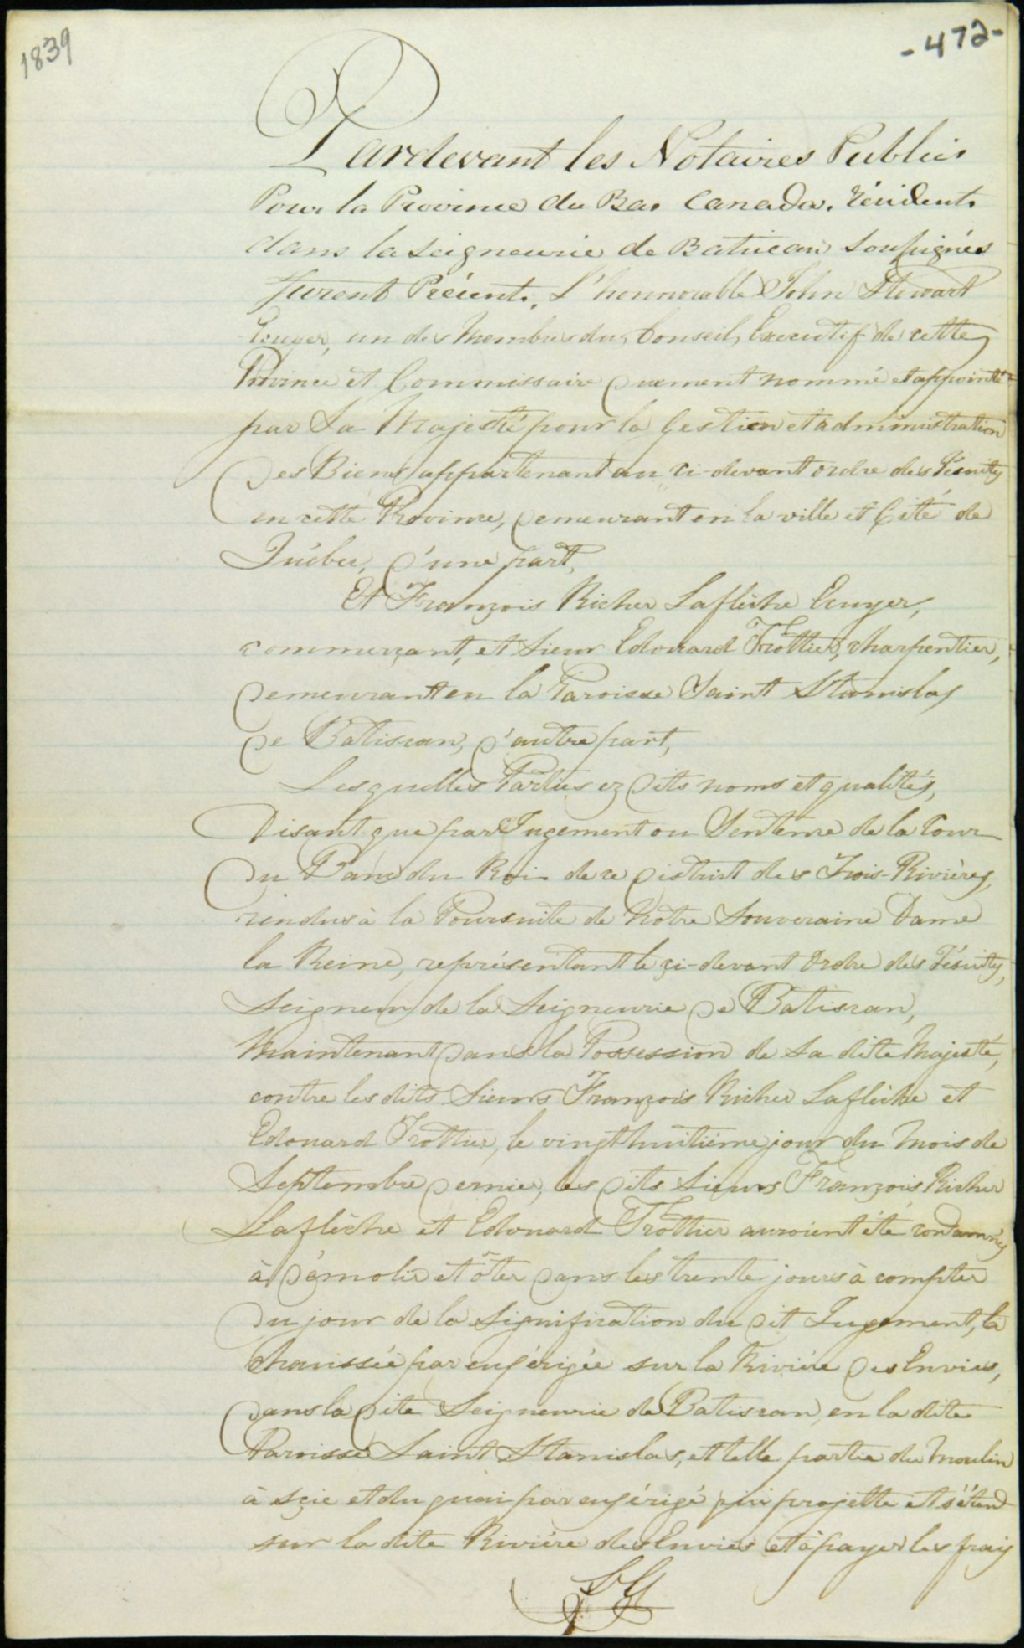 1839
-472-
Pardevant les Notaires Publics
Pour la Province du Bas Canada, résidents
dans la Seigneurie de Batiscan Soussignés
furent Présents, L'honnorable John Stewart
Ecuyer, un des Membres du Conseil Executif de cette
Province et Commissaire duement nommé et appointé
par Sa Majesté pour la Gestion et administration
des Biens appartenant au ci-devant ordre des Jésuites
en cette Province, demeurant en la ville et Cité de
Québec, d'une part,
Et François Richer Laflèche Ecuyer,
commerçant, et Sieur Edouard Trottier, charpentier,
demeurant en la Paroisse Saint Stanislas
de Batiscan, d'autre part,
Lesquelles Parties ez dits noms et qualités,
Disant que par Jugement ou Sentence de la Cour
du Banc du Roi de ce District des Trois-Rivières,
rendus à la Poursuite de Notre Souveraine Dame
la Reine, représentant le ci-devant Ordre des Jésuites,
Seigneur de la Seigneurie de Batiscan,
Maintenant dans la Possession de Sa dite Majesté,
contre les dits Sieurs François Richer Laflèche et
Edouard Trottier, le vingt huitième jour du Mois de
Septembre dernier, les dits Sieurs François Richer
Laflèche et Edouard Trottier auroient été condamnés
à démolir et ôter dans les trente jours à compter
du jour de la Signification du dit Jugement, la
Chaussée par eux érigée sur la Rivière des Envies,
dans la dite Seigneurie de Batiscan, en la dite
Paroisse Saint Stanislas, et telle partie du Moulin
à scie et du quai par eux érigé qui projette et s'étend
sur la dite Rivière des Envies et à payer les frais